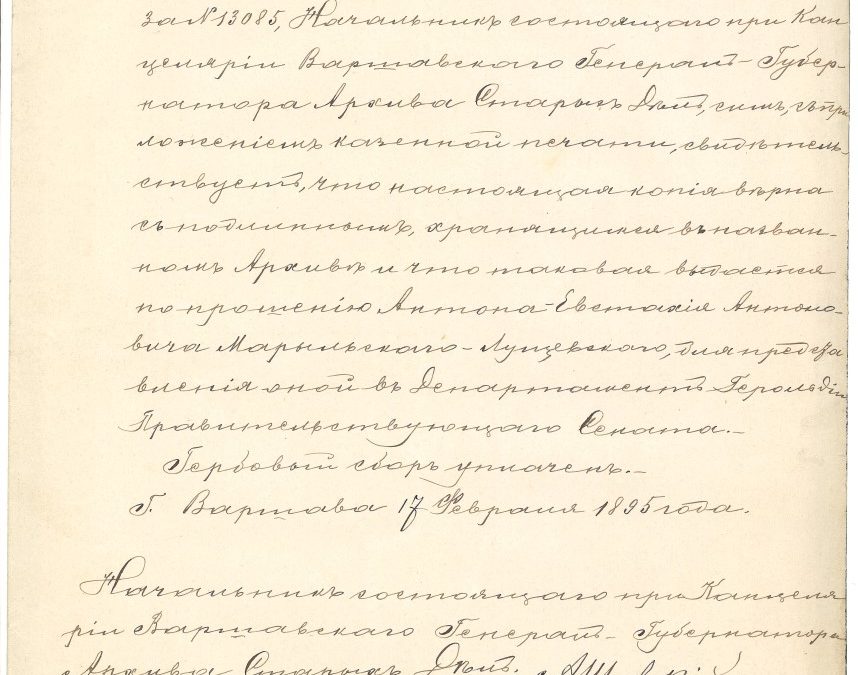 за №13085, Начальникъ состоящаго при Кан
целяріи Варшавскаго Генералъ-Губер-
натора Архива Старыхъ Дѣлъ, симъ, съ при
ложеніемъ казенной печати, свидѣтель-
ствуетъ, что настоящая копія вѣрна
съ подлинникомъ, хранящимся въ назван-
номъ Архивѣ и что таковая выдается
по прошенію Антона-Евстахія Антоно-
вича Марыльскаго-Лущевскаго, для предста
вленія оной въ Департаментъ Герольдіи
Правительствующаго Сената.-
Гербовый сборъ уплаченъ.-
Г. Варшава 17 Февраля 1895 года.
Начальникъ состоящаго при Канцеля
ріи Варшавскаго Генералъ-Губернатора
Архива Старыхъ Дѣлъ.